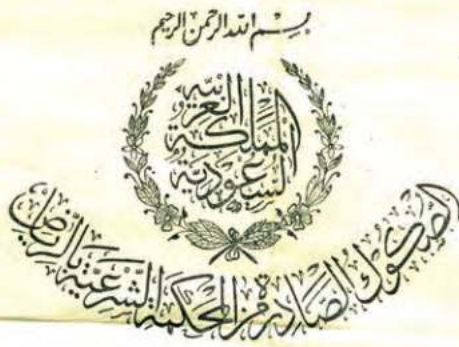 بسم الله الرحمن الرحيم
المملكة العربية السعودية
الصكوك الصادرة من المحكمة الشرعية بالرياض